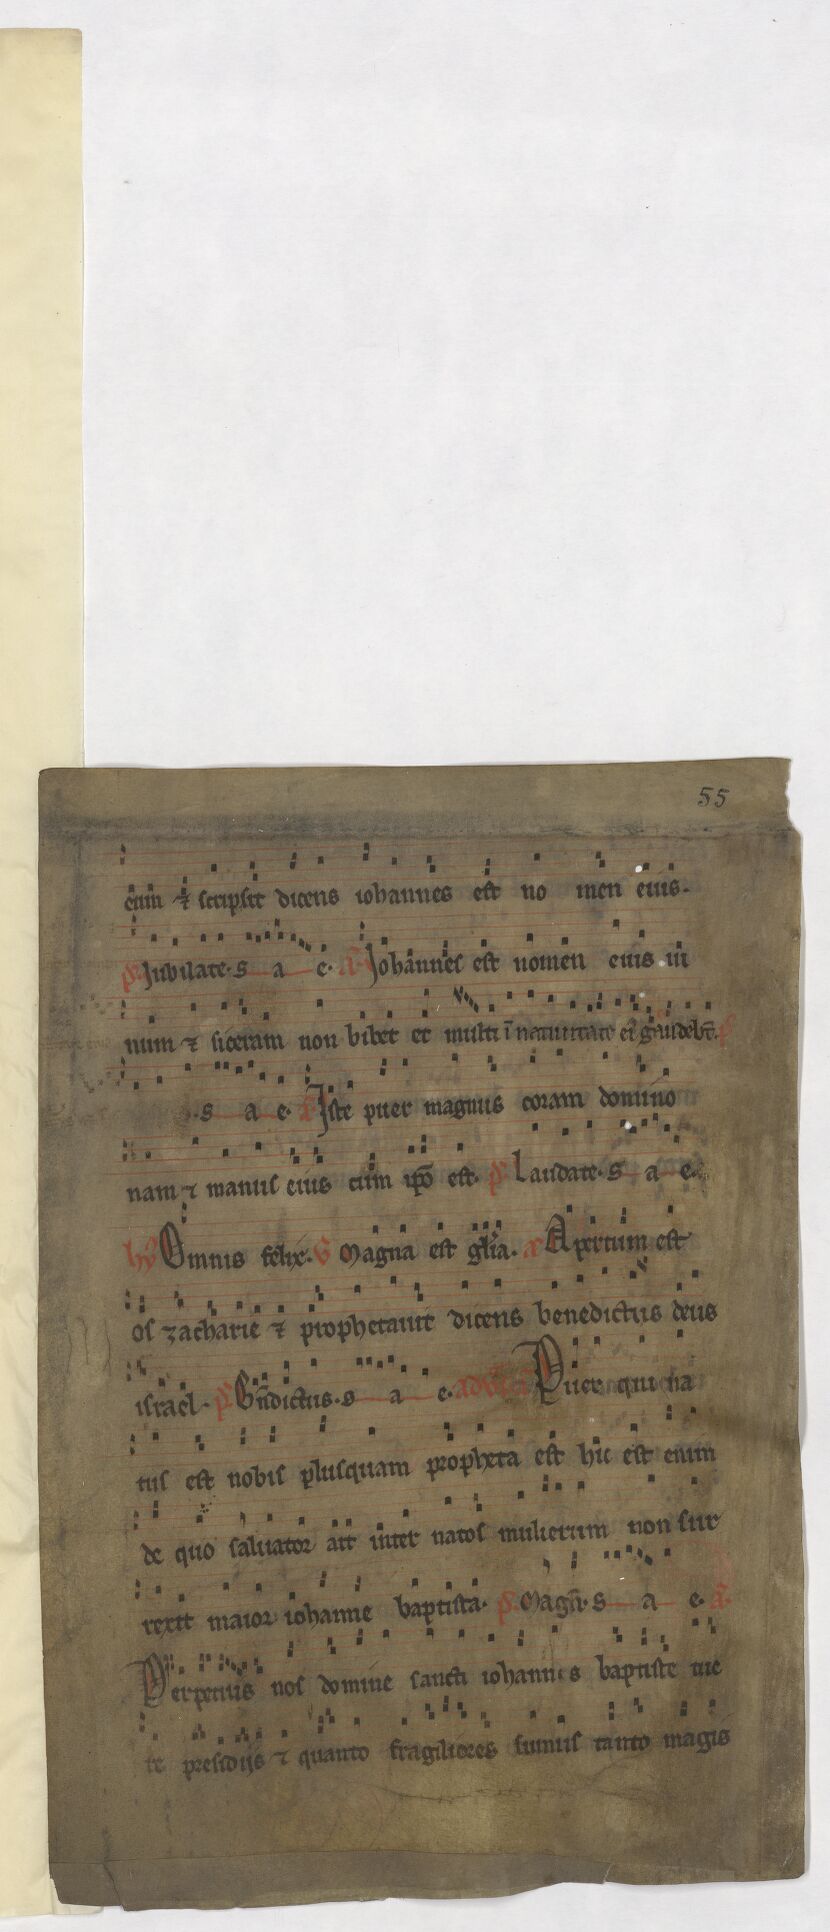 55
eum ⁊ scripsit dicens iohannes est no men eius.
ps Iubilate. s a e. a Iohannes est nomen eius ui
num ⁊ siceram non bibet et multi ī natiuitate ei gaudebt. p
. s a e. a Iste puer magnus coram domino
nam ⁊ manus eius cum ipo est. ps Laudate. s a e.
hy Omnis felix. v Magna est glia. a Apertum est
os zacharie ⁊ prophetauit dicens benedictus deus
israel. ps Bndictus. s a e. Puer qui na
tus est nobis plusquam propheta est hic est enim
de quo saluator ait inter natos mulierum non sur
rexit maior iohanne baptista. ps Magn. s a e. a.
Perpetuis nos domine sancti iohannis baptiste tue
re presidijs ⁊ quanto fragiliores sumus tanto magis